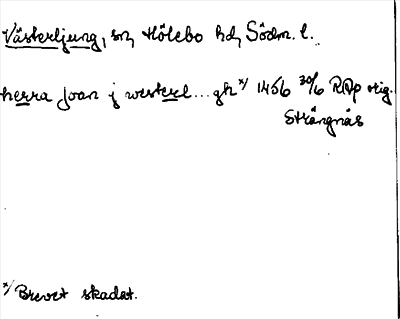 Västerljung, sn, Hölebo hd, Södm. l.
herra Joan j westerl...gh x/ 1456 30/6 RAp orig.
Strängnäs
x/ Brevet skadat.